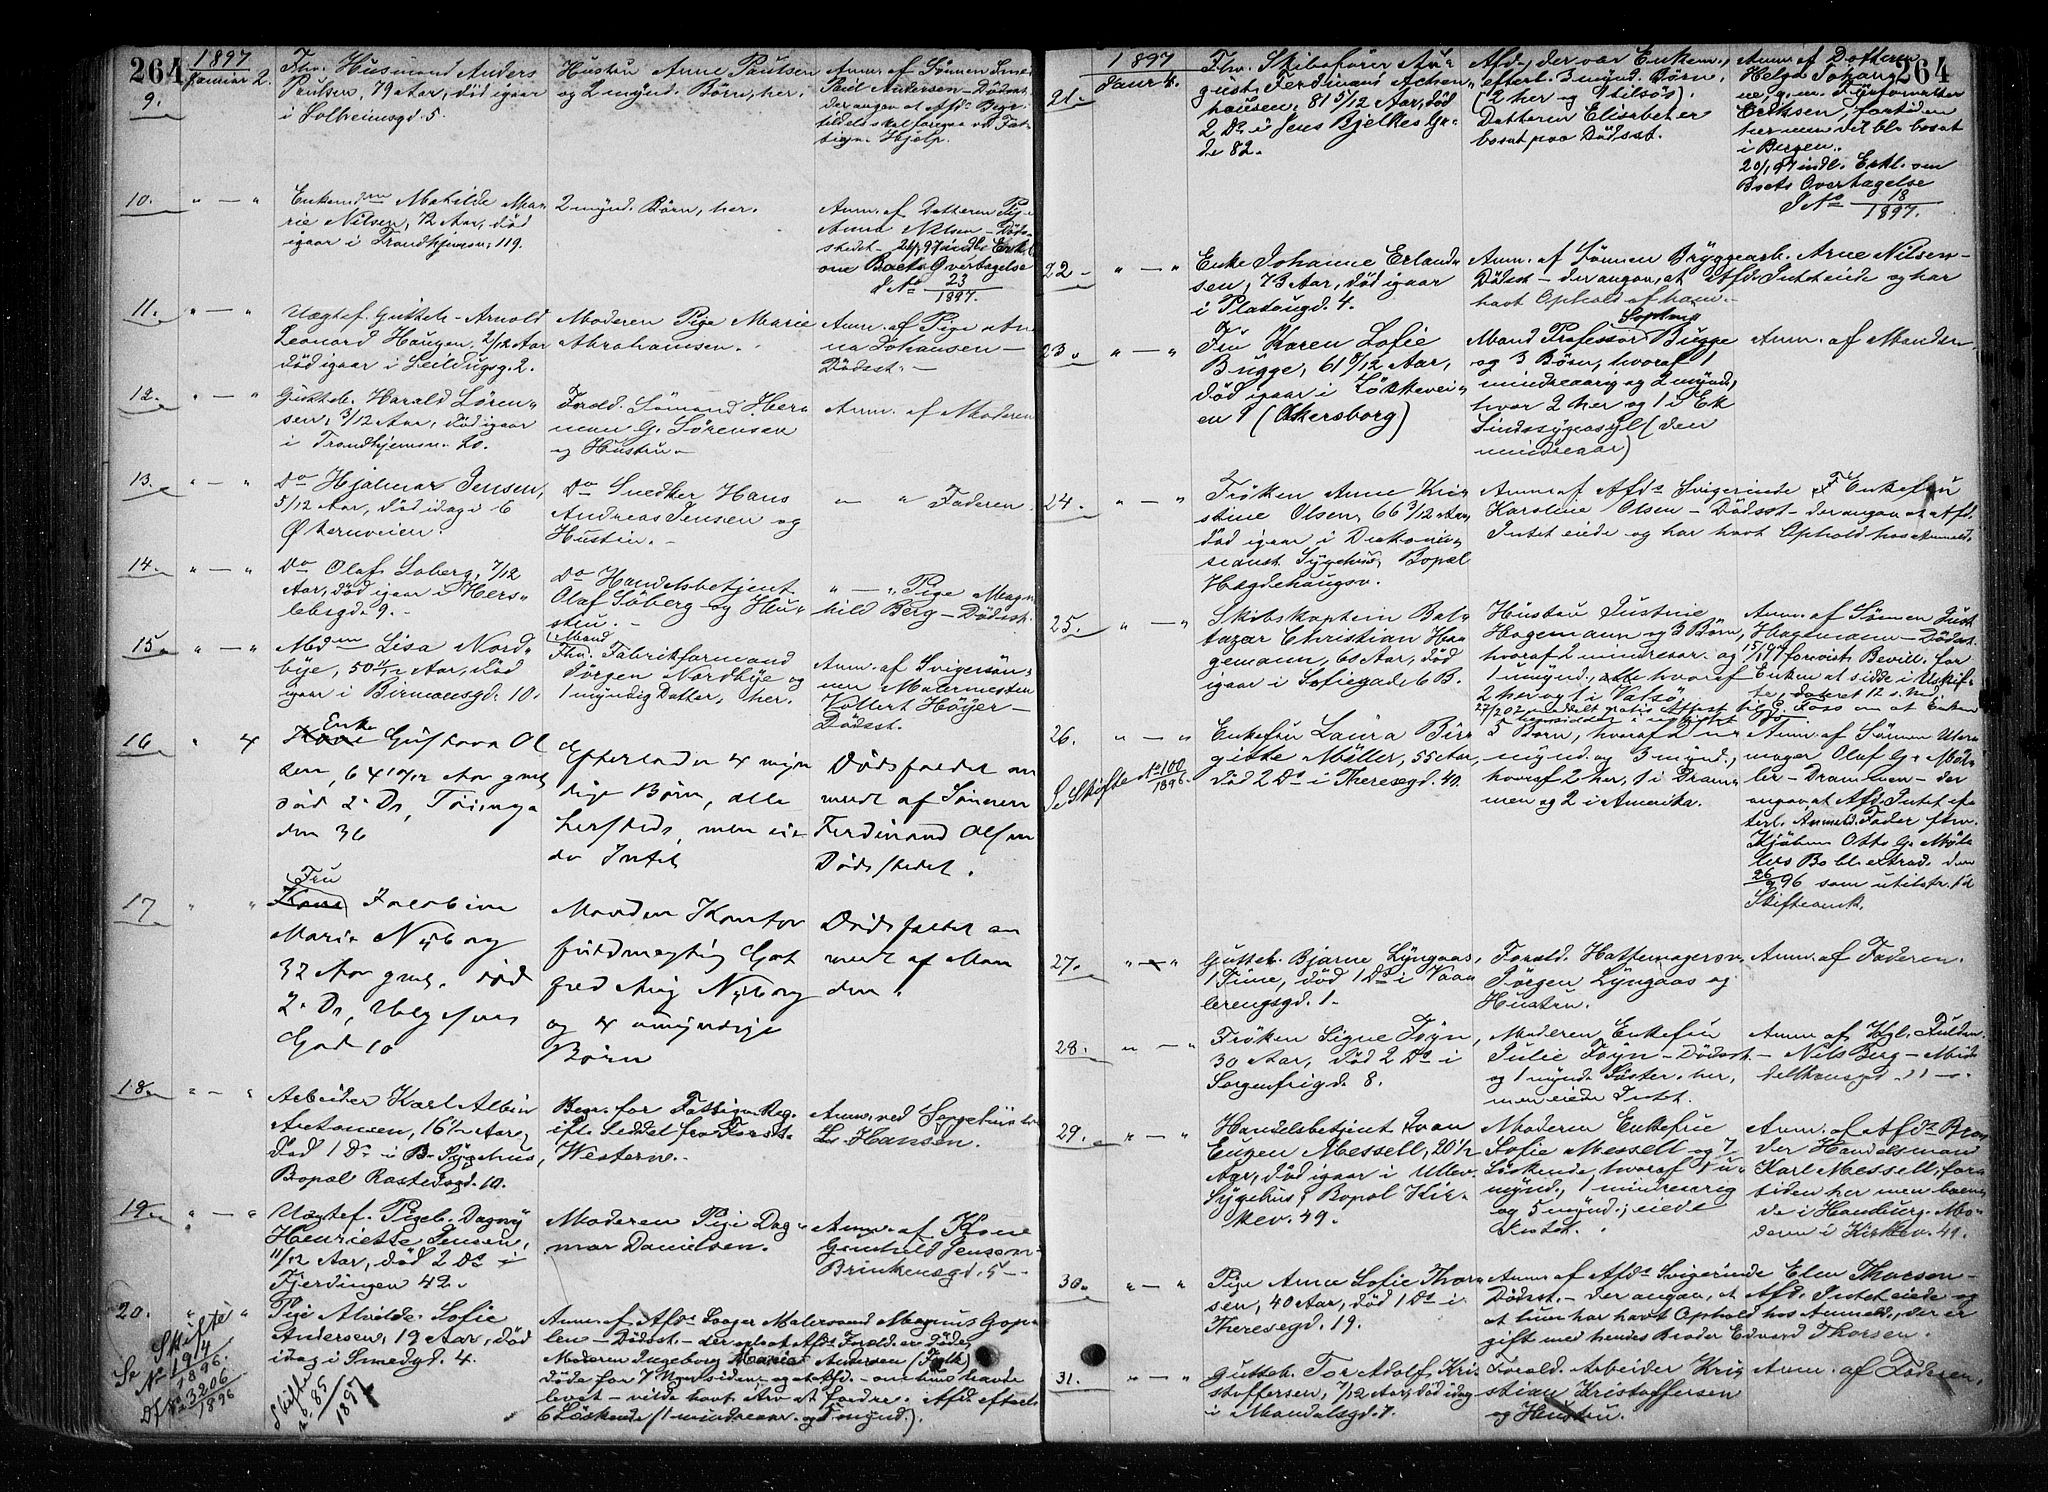 264
1897
Januar 2.
9.
Fhv. Husmand Anders
Paulsen, 79 Aar, död igaar
i Solheimsgd. 5.
Hustru Anne Paulsen
og 2 mynd. Börn, her.
Anm. af Sønnen
Paul Andersen - Dødsst.
der angav at Afd. Begr.
skal foregaa ved Fat-
tigv. Hjelp.
10.
" — "
Enkem Mathilde Ma-
rie Nilsen, 72 Aar, død
igaar i Trondhjemsv. 119.
2 mynd. Börn, her.
Anm. af Datteren Pige
Anna Nilsen - Döds-
stedet - indl. Erkl.
om Boets Overtagelse
J No 23
1897.
11.
" — "
Uægtef. Gutteb. Arnold
Leonard Haugen, 2/12 Aar
död igaar i Seildugsg. 2.
Moderen Pige Marie
Abrahamsen.
Anm. af Pige An-
na Johansen -
Dödsst. -
12.
" — "
Gutteb. Harald Sören-
sen, 3/12 Aar, död igaar
i Trondhjemsv. 20.
Forald. Sömand Her-
man G. Sørensen
og Hustru.
Anm. af Moderen
13.
" — "
Do Hjalmar Jensen,
5/12 Aar, död idag i 6
Økernveien.
Do Snedker Hans
Andreas Jensen og
Hustru. -
" " Faderen.
14.
" — "
Do Olaf Soberg, 7/12
Aar, död igaar i Hers-
lebsgd. 9. -
Do Handelsbetjent
Olaf Söberg og Hu-
stru. -
" — " Pige Mag-
hild Berg - Dödsst.
15.
" — "
Mdm Lisa Nord-
bye, 50 1/2 Aar, död
igaar i Birmansgd. 10.
Mand
Fhv. Fabrikformand
Jörgen Nordbye og
1 myndig Datter, her.
Anm. af Svigersön-
nen Malermester
Vollert Höyer -
Dödsst.
16
" 4
Enke
Kone Gustava Ol
sen, 64 10/12 Aar gml
död 2. Ds, Töienga
den 36
Efterlader 4 myn
dige Börn, alle
hersteds, men eie
de Intet
Dödsfaldet an
meldt af Sönnen
Ferdinand Olsen
Dödsstedet.
17
" "
Fru
Kone Jacobine
Marie Nyborg
32 Aar gml. död
2. Ds, Uelgesens
Gad 10
Manden Kontor
fuldmægtig Got
fred Aug Nyborg
og 4 umyndige
Börn
Dödsfaldet an
meldt af Man
den.
18.
" — "
Arbeider Karl Albin
Antonsen, 16 1/2 Aar,
Död 1 Ds i B. Sygehus,
Bopæl Rastedsgd. 10.
Begr. for Fattigv. Reg.
ifte Seddel fra Forst.
Western. -
Anm. ved Sygehusets
Hansen.
19.
" — "
Uægtef. Pigeb. Dagny
Henriette Jensen,
11/12 Aar, död 2 Ds i
Fjerdingen 42.
Moderen Pige Dag-
mar Danielsen.
Anm. af Kone
Gunhild Jensen
Brinkensgd. 5 -
20.
" "
Se Skifte
No 194
1896.
Df No 3206
1896
Skifte
No. 85
1897
Pige Alvilde Sofie
Andersen, 19 Aar, död
idag i Smedgd. 4.
Anm. af Afds Svoger Malersvend Magnus Gop-
len - Dødsst. - der oplyst Afds Forald. er döde,
Moderen Ingeborg Marie Andersen (Falk)
döde for 7 Maaneder siden - og at Afd. - om hun havde
levet - vilde havt Arv at fordre. Afd. efterl.
6 Söskende (1 mindreaar. og 5 mynd.).
264
1897
21.
Januar 4.
Fhv. Skibsförer Au-
gust Ferdinand Achen-
hausen, 81 5/12 Aar, död
2 Ds i Jens Bjelkes Ga-
de 82.
Afd., der var Enkem.,
efterl. 3 mynd. Börn.
(2 her og 1 tilsös).
Datteren Elisabet er
bosat paa Dödsst.
Anm. af Datteren
Helga Johan-
ne g. m. Fyrforvalter
Eriksen, fortiden
her men vil bli bosat
i Bergen.
20/1 97 indl. Erkl. om
Boets Overtagelse
J No 18
1897.
22.
" — "
Enke Johanne Erland-
sen, 73 Aar, död igaar
i Platougd. 4.
Anm. af Sønnen Bryggearb. Arne Nilsen -
Dödsst - der angav, at Afd. Intet eiede og har
havt Ophold af ham. -
23.
" — "
Fru Karen Sofie
Bugge, 61 8/12 Aar,
död igaar i Lökkevei-
en 9 (Akersborg)
Sophus
Mand Professor Bugge
og 3 Börn, hvoraf 1
mindreaarig og 2 mynd,
hvor 2 her og 1 i Ek
Sindssygeasyl (den
mindreaar)
Anm. af Manden.
24.
" — "
Fröken Anne Kri-
stine Olsen, 66 3/12 Aar,
död igaar i Diakonis-
seanst. Sygehus, Bopæl
Hægdehaugsv.
Anm. af Afds Svigerinde Enkefru
Karoline Olsen - Dödsst - der angav at Afd.
Intet eiede og har havt Ophold hos Anmeld.
25.
" — "
Skibskaptein Bal-
tazar Christian Ha-
gemann, 60 Aar, död
igaar i Sofiegade 6 B.
Hustru Justine
Hagemann og 3 Börn,
hvoraf 2 mindreaar. og
1 umynd., alle hvoraf
2 her og 1 i Valsö.
Anm. af Sønnen Just
Hagemann - Dödsst.
15/1 97 forevist Bevill. for
Enken at sidde i Uskif-
te, dateret 12 s. Md.
27/2 02 meddelt gratis Attest til E. Foss om at Enken
hensidder i uskiftet Bo.
26.
" — "
Se Skifte No 100
1896.
Enkefru Laura Bir-
gitte Möller, 55 Aar,
död 2 Ds i Theresegd. 40.
5 Börn, hvoraf 2 u-
mynd. og 3 mynd.,
hvoraf 2 her, 1 i Dram-
men og 2 i Amerika.
Anm. af Sønnen Uhr-
mager Olaf G. Möl-
ler - Drammen - der
angav, at Afd. Intet ef-
terl. Anmeld. Fader fhv.
Kjöbm. Otto G. Möl-
lers Bo bl. extrad. den
26/9 96 som utilstr. til
Skifteomk.
27.
" — "
Gutteb. Bjarne Lyngaas,
1 Time, död 1 Ds i Vaa-
lerengsgd. 1.
Forald. Hattemagersv.
Jörgen Lyngaas og
Hustru.
Anm. af Faderen.
28.
" — "
Fröken Signe Föyn,
30 Aar, död 2 Ds i
Sorgenfrigd. 8.
Moderen Enkefru
Julie Föyn - Dödsst -
og 1 mynd. Söster, her,
men eiede Intet.
Anm. af Kgl. Fuldm.
Nils Berg - Mid-
delthunsgd. 11 -
29.
" — "
Handelsbetjent Ivan
Eugen Messell, 20 1/2
Aar, död igaar i Ullev.
Sygehus, Bopæl Kir-
kev. 49.
Moderen Enkefrue
Sofie Messell og 7
Söskende, hvoraf 1 u-
mynd., 1 mindreaarig
og 5 mynd.; eiede
Intet.
Anm. af Afds Bro-
der Handelsmand
Karl Messell, for-
tiden her men boen-
de i Hamburg. Mo-
deren i Kirkev. 49.
30.
" — "
Pige Anne Sofie Thor-
sen, 40 Aar, död 1 Ds i
Theresegd. 19.
Anm. af Afds Svigerinde Elen Thorsen -
Dødsst. - der angav, at Afd. Intet eiede og
at hun har havt Ophold hos Anmeld., der er
gift med hendes Broder Edvard Thorsen.
31.
" — "
Gutteb. Tor Adolf Kri-
stoffersen, 7/12 Aar, död idag
i Mandalsgd. 7.
Forald. Arbeider Kri-
stian Kristoffersen
og Hustru.
Anm. af Faderen.